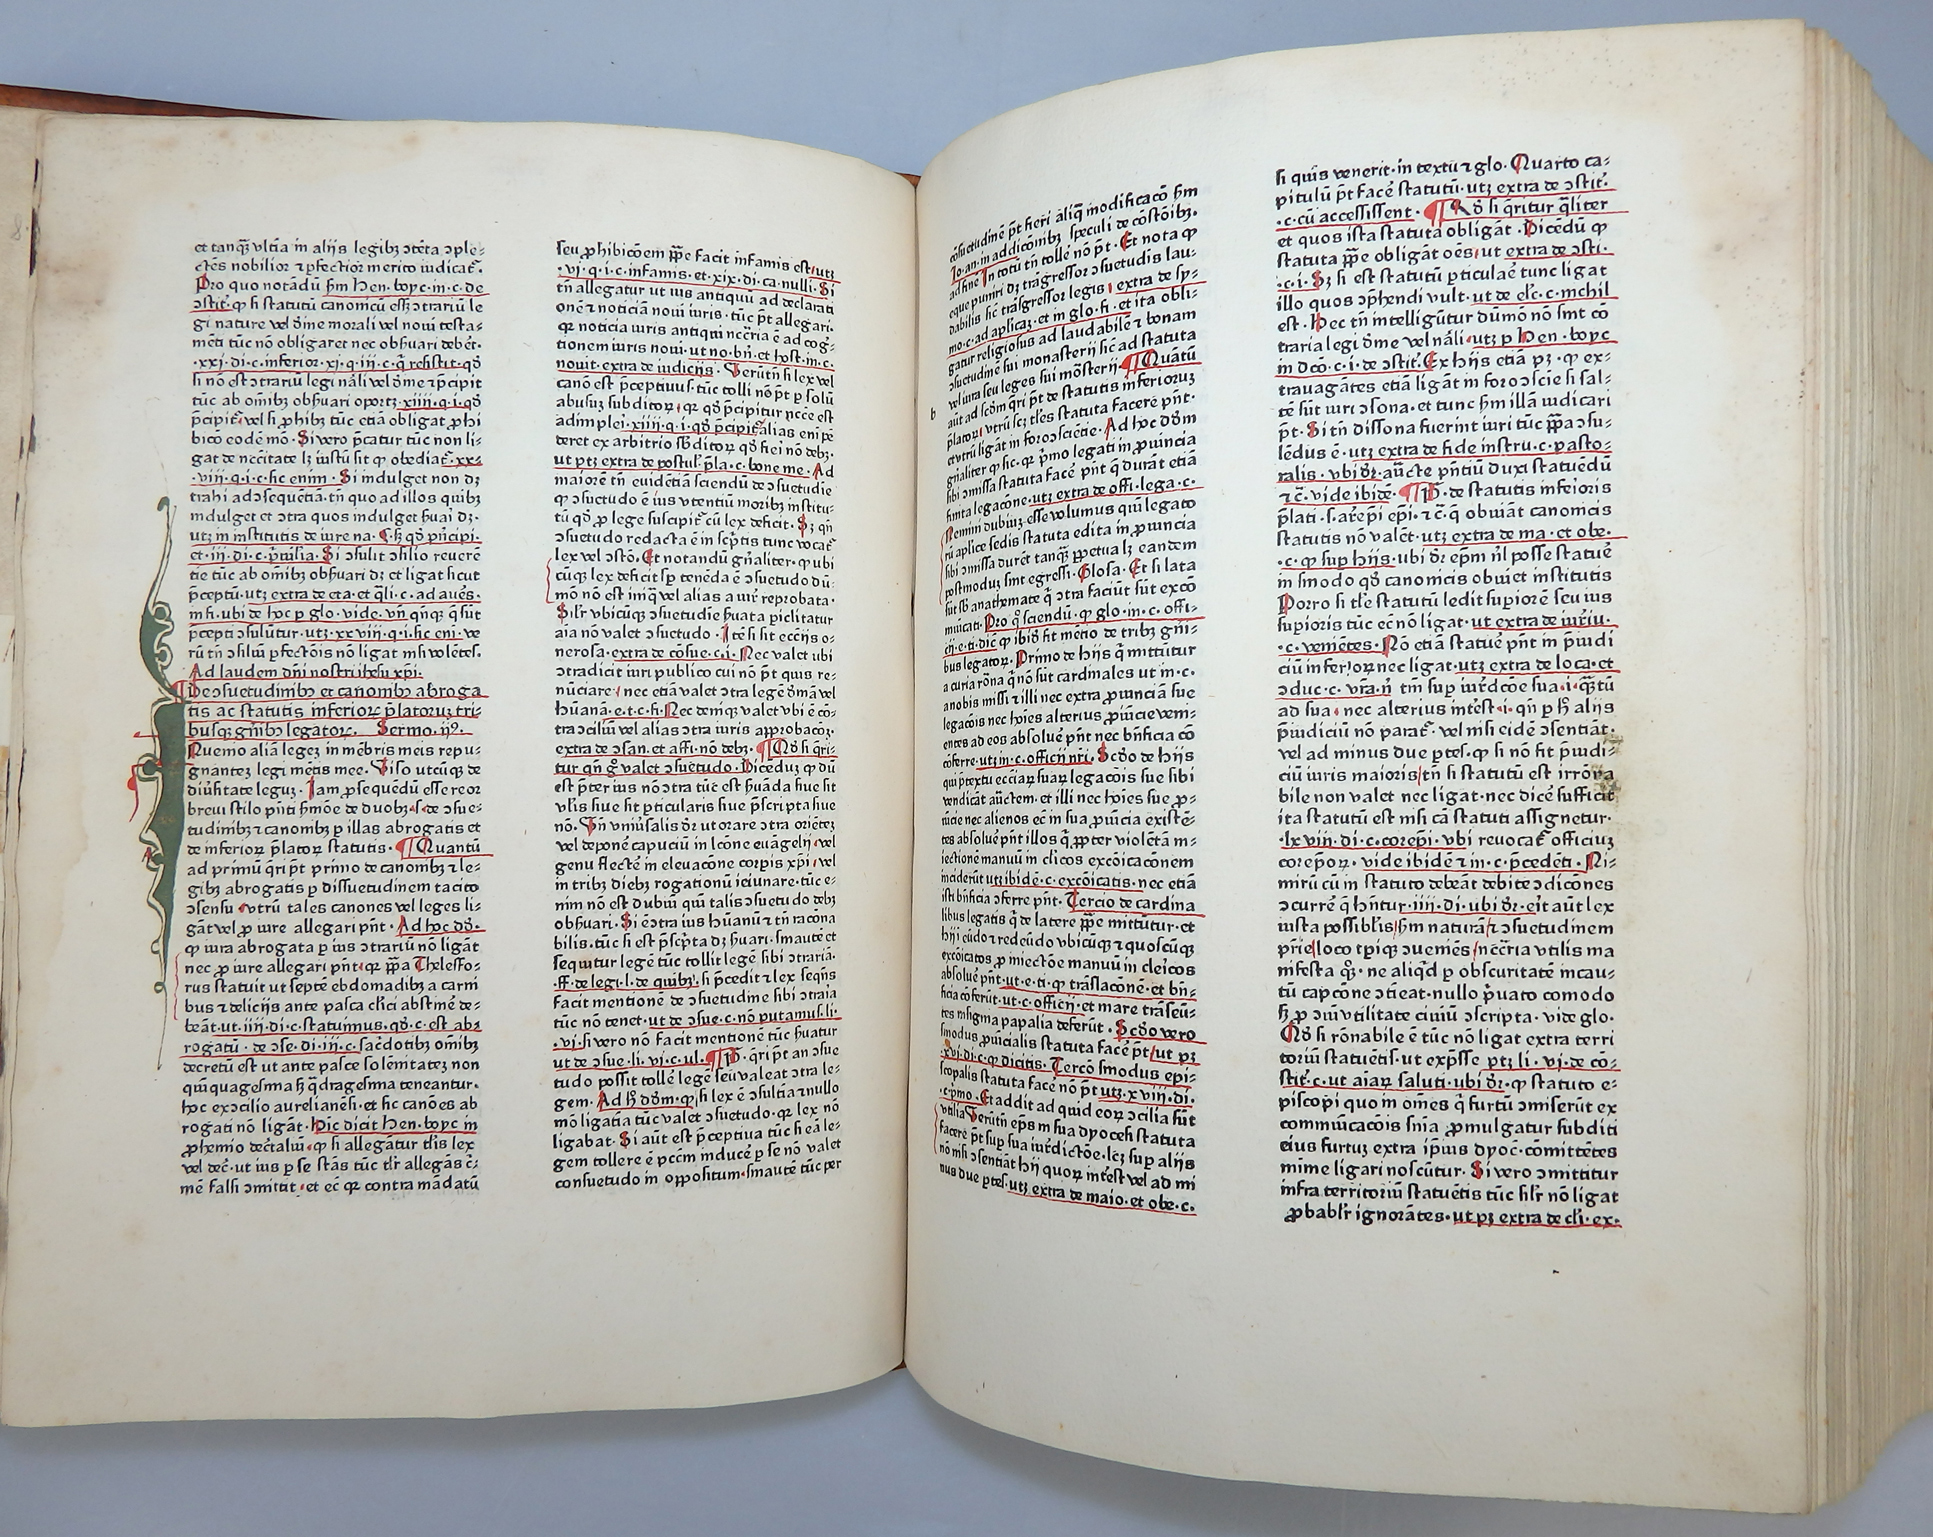 et tanq̃ꝫ vltĩa in alijs legibꝫ ɔtẽta ɔple⸗
ctẽs nobilior ⁊ ꝑfectior merito iudicat᷑.
Pro quo notãdũ ẜm Hen.boyc.in.c.de
ɔstit᷑.ꝙ si statutũ canonicũ esset ɔtrariũ le
gi nature vel d̾me morali vel noui testa⸗
mẽti tũc nõ obligaret nec obẜuari debẽt.
.xxj.di.c.inferior.xj.q.iij.c.q̃ resistit.qd̾
si nõ est ɔtrariũ legi nãli vel d̾me ⁊ p̃cipit
tũc ab oĩbꝫ obẜuari oportꝫ.xiiij.q.i.qd̾
p̃cipit᷑.vel si ꝓhibꝫ tũc etiã obligat ꝓhi
bico eodẽ mõ. Si vero p̃catur tũc non li⸗
gat de neccitate lꝫ iustũ sit ꝙ obediat᷑.xx⸗
viij.q.i.c.sic enim. Si indulget non dꝫ
trahi ad ɔsequẽtiã.tñ quo ad illos quibꝫ
indulget et ɔtra quos indulget ẜuari dꝫ.
utꝫ in institutis de iure na. C.sꝫ qd̾ p̃ncipi.
et.iij.di.c.p̃uilia. Si ɔsulit ɔsilio reuerẽ
tie tũc ab omĩbꝫ obẜuari dꝫ et ligat sicut
p̃ceptũ.utꝫ extra de eta.et q̃li.c.ad aues.
in fi.ubi de hoc ꝑ glo.vide.vñ qñqꝫ q̃ sũt
p̃cepti ɔsulũtur.utꝫ.xxviij.q.i.sic eni.ve
rũ tñ ɔsiliũ ꝑfectõis nõ ligat nisi volẽtes.
Ad laudem dñi nostri ihesu xp̃i.
De ɔsuetudinibꝫ et canonibꝫ abroga
tis ac statutis inferioꝝ p̃latoruꝫ tri⸗
busqꝫ gñibꝫ legatoꝝ. Sermo.ijꝰ.
Inuenio aliã legeꝫ in mẽbris meis repu⸗
gnanteꝫ legi mẽtis mee. Viso utcũqꝫ de
diũsitate leguꝫ. Iam ꝓsequẽdũ esse reor
breui stilo p̃nti ẜmõe de duobꝫ.s.de ɔsue⸗
tudinibꝫ ⁊ canonibꝫ ꝑ illas abrogatis et
de inferioꝝ p̃latoꝝ statutis. ¶Quantũ
ad primũ q̃ri pt̃ primo de canonibꝫ ⁊ le⸗
gibꝫ abrogatis ꝑ dissuetudinem tacito
ɔsensu.vtrũ tales canones vel leges li⸗
gãt vel ꝓ iure allegari pñt. Ad hoc dõ.
ꝙ iura abrogata ꝑ ius ɔtrariũ nõ ligãt
nec ꝓ iure allegari pñt.qꝛ p̃p̃a Thelesfo⸗
rus statuit ut septẽ ebdomadibꝫ a carni
bus ⁊ delicijs ante pasca clĩci abstinẽ de⸗
beãt.ut.iiij.di.c.statuimus.qd̾.c.est abꝫ
rogatũ.de ɔse.di.iij.c.sac̾dotibꝫ omĩbꝫ
decretũ est ut ante pasce solẽnitateꝫ non
quĩquagesima sꝫ q̃dragesima teneantur.
hoc ex ɔcilio aurelianẽsi.et sic canões ab
rogati nõ ligãt. Hic dicit Hen.boyc in
ꝓhemio dec̾taliũ.ꝙ si allegãtur tĩs lex
vel dec̾.ut ius ꝑ se stãs tũc tĩr allegãs c̾i⸗
mẽ falsi ɔmittit.et ec̃ qꝛ contra mãdatũ
seu ꝓhibicõem p̃p̃e facit infamis est.utꝫ
.vj.q.i.c.infamis.et.xix.di.ca.nulli. Si
tñ allegatur ut ius antiquũ ad declarati
onẽ ⁊ noticiã noui iuris.tũc pt̃ allegari.
qꝛ noticia iuris antiqui ncc̃ria ẽ ad cog⸗
tionem iuris noui.ut no.bñ.et host.in.c.
nouit.extra de iudicijs. Verũtñ si lex vel
canõ est p̃ceptiuus.tũc tolli nõ pt̃ ꝑ solũ
abusuꝫ subditoꝝ.qꝛ qd̾ p̃cipitur ncc̃e est
adimplei.xiiij.q.i.qd̾ p̃cipit᷑.alias eni pẽ
deret ex arbitrio sb̾ditoꝝ qd̾ fiei nõ debꝫ.
ut ptꝫ extra de postul᷑.p̃la.c.bone me. Ad
maiorẽ tñ euidẽtiã sciendũ de ɔsuetudie
ꝙ ɔsuetudo ẽ ius vtentiũ moribꝫ institu⸗
tũ qd̾ ꝓ lege suscipit᷑ cũ lex deficit. Sꝫ qñ
ɔsuetudo redacta ẽ in sc̾ptis tunc vocat᷑
lex vel ɔsto. Et notandũ gñaliter.ꝙ ubi
cũqꝫ lex deficit sꝑ tenẽda ẽ ɔsuetudo dũ⸗
mõ nõ est iniq̃ vel alias a iur̃ reprobata.
Silr̃ vbicũqꝫ ɔsuetudie ẜuata piclitatur
aĩa nõ valet ɔsuetudo. Itẽ si sit ecc̃ijs o⸗
nerosa.extra de cõsue.c.i. Nec valet ubi
ɔtradicit iuri publico cui nõ pt̃ quis re⸗
nũciare.nec etiã valet ɔtra legẽ d̾inã vel
hũanã.e.t.c.fi. Nec deniqꝫ valet vbi ẽ cõ⸗
tra ɔciliũ vel alias ɔtra iuris approbacoꝫ.
extra de ɔsan.et affi.nõ debꝫ. ¶Qd̾ si q̃ri⸗
tur qñ gͦ valet ɔsuetudo. Dicẽduꝫ ꝙ dũ
est p̃ter ius nõ ɔtra tũc est ẜuãda siue sit
vl̾is siue sit ꝑticularis siue p̃scripta siue
nõ. Vñ vniũsalis dr̃ ut orare ɔtra oriẽteꝫ
vel deponẽ capuciũ in lc̃one euãgelij.vel
genu flectẽ in eleuacõne corꝑis xp̃i.vel
in tribꝫ diebꝫ rogationũ ieiunare.tũc e⸗
nim nõ est dubiũ qui talis ɔsuetudo debꝫ
obẜuari. Si ẽ ɔtra ius hũanũ ⁊ tñ racõna
bilis.tũc si est p̃sc̾pta dꝫ ẜuari.sinautẽ et
sequitur legẽ tũc tollit legẽ sibi ɔtrariã.
.ff.de legi.l.de quibꝫ.si p̃cedit ⁊ lex seqñs
facit mentionẽ de ɔsuetudine sibi ɔtraĩa
tũc nõ tenet.ut de ɔsue.c.nõ putamus.li.
.vj.si vero nõ facit mentionẽ tũc ẜuatur
ut de ɔsue.li.vj.c.ul. ¶Iꝫ.q̃ri pt̃ an ɔsue
tudo possit tollẽ legẽ seu valeat ɔtra le⸗
gem. Ad hꝫ dõm.ꝙ si lex ẽ ɔsultĩa ⁊ nullo
mõ ligatia tũc valet ɔsuetudo.qꝛ lex nõ
ligabat. Si aũt est p̃ceptiua tũc si eã le⸗
gem tollere ẽ pcc̃m inducẽ ꝑ se nõ valet
consuetudo in oppositum.sinautẽ tũc per
cõsuetudinẽ pt̃ fieri aliq̃ modificacõ ẜm
Io.an.in addicõnibꝫ speculi de cõstõibꝫ.
ad finẽ In totũ tñ tollẽ nõ pt̃. Et nota ꝙ
eque puniri dꝫ trãgressor ɔsuetudis lau⸗
dabilis sic̾ trãsgressor legis.extra de sy⸗
mo.c.ad aplicaꝫ.et in glo.fi.et ita obli⸗
gatur religiosus ad laudabilẽ ⁊ bonam
ɔsuetudinẽ sui monasterij sic̾ ad statuta
vel iura seu leges sui mõsterij. ¶Quãtũ
aũt ad scõm q̃ri pt̃ de statutis inferioruꝫ
p̃latoꝝ.vtrũ scꝫ tles statuta facere pñt.
et vtrũ ligãt in foro ɔsciẽtie. Ad hoc dõm
gñaliter ꝙ sic.qꝛ p̃mo legati in ꝓuincia
sibi ɔmissa statuta facẽ pñt q̃ durãt etiã
finita legacõne.utꝫ extra de offi.lega.c.
Nemini dubiuꝫ esse volumus quĩ legato
rũ aplice sedis statuta edita in ꝓuincia
sibi ɔmissa durẽt tanq̃ꝫ ꝑpetua lꝫ eandem
postmoduꝫ sint egressi. Glosa. Et si lata
sũt sb̾ anathemate q̃ ɔtra faciũt sũt excõ
mũicati. Pro qͦ sciendũ.ꝙ glo.in.c.offi⸗
cij.e.ti.dic̾ ꝙ ibid̾ fit mẽtio de tribꝫ gñi⸗
bus legatoꝝ. Primo de hijs q̃ mittũtur
a curia rõna q̃ nõ sũt cardinales ut in.c.
a nobis missi ⁊ illi nec extra ꝓuinciã sue
legacõis nec hoĩes alterius ꝓuĩcie veni⸗
entes ad eos absoluẽ pñt nec bñficia cõ
ferre.utꝫ in.c.officij nr̃i. Scd̾o de hijs
qui p̃textu ecc̃iaꝝ suaꝝ legacõis sue sibi
vendicãt auc̃tem.et illi nec hoĩes sue ꝓ⸗
uĩcie nec alienos ec̃ in sua ꝓuĩcia existẽ⸗
tes absoluẽ pñt illos q̃ ꝓpter violẽtã in⸗
iectionẽ manuũ in clĩcos excõicacõnem
inciderũt utꝫ ibidẽ.c.excõicatis.nec etiã
isti bñficia ɔferre pñt. Tercio de cardina
libus legatis q̃ de latere p̃p̃e mittũtur.et
hij eũdo ⁊ redeũdo vbicũqꝫ ⁊ quoscũqꝫ
excõicatos ꝓ iniectõe manuũ in cleĩcos
absoluẽ pñt.ut.e.ti.ꝙ trãslaconẽ.et bñ⸗
ficia cõferũt.ut.c.officij.et mare trãseũ⸗
tes insignia papalia deferũt. Scd̾o vero
sinodus ꝓuĩcialis statuta facẽ pt̃.ut pꝫ
.xvj.di.c.ꝙ dicitis. Tercõ sinodus epi⸗
scopalis statuta facẽ nõ pt̃ utꝫ.xviij.di.
.c.p̃mo. Et addit ad quid eoꝝ ɔcilia sũt
vtilia. Verũtñ ep̃s in sua dyocesi statuta
facere pt̃ sup sua iurid̾ictõe.lꝫ sup aliĩs
nõ nisi ɔsentiãt hij quoꝝ int̾est vel ad mi
nus due ptes.utꝫ extra de maio.et obe.c.
b
si quis venerit.in textu ⁊ glo. Quarto ca⸗
pitulũ pt̃ facẽ statutũ.utꝫ extra de ɔstit᷑.
.c.cũ accessissent. ¶Qd̾ si q̃ritur q̃liter
et quos ista statuta obligãt. Dicẽdũ ꝙ
statuta p̃p̃e obligãt oẽs.ut extra de ɔsti.
.c.i. Sꝫ si est statutũ ꝑticulaẽ tunc ligat
illo quos ɔp̃hendi vult.ut de elc̾.c.nichil
est. Hec tñ intelligũtur dũmõ nõ sint cõ
traria legi d̾me vel nãli.utꝫ ꝑ Hen.boyc
in dcõ.c.i.de ɔstit᷑. Ex hijs etiã pꝫ.ꝙ ex⸗
trauagãtes etiã ligãt in foro ɔsciẽ si sal⸗
tẽ sũt iuri ɔsona.et tunc ẜm illã iudicari
pt̃. Si tñ dissona fuerint iuri tũc p̃p̃a ɔsu⸗
lẽdus ẽ.utꝫ extra de fide instru.c.pasto⸗
ralis.vbi dr̃.auc̃te p̃ntiũ duxi statuẽdũ
⁊ c̃.vide ibidẽ. ¶Iꝫ.de statutis inferioris
p̃lati.s.arẽpi ep̃i.⁊ c̃.q̃ obuiãt canonicis
statutis nõ valẽt.utꝫ extra de ma.et obe.
.c.ꝙ sup hijs.ubi dr̃ ep̃m nl̃ posse statuẽ
in sinodo qd̾ canonicis obuiet institutis
Porro si tl̃e statutũ ledit supiorẽ seu ius
supioris tũc ec̃ nõ ligat.ut extra de iur̃iu.
.c.veniẽtes. Nõ etiã statuẽ pñt in p̃iudi
ciũ inferioꝝ nec ligat.utꝫ extra de loca.et
ɔduc.c.vr̃a.ñ tm̃ sup iurd̾cõe sua.i.q̃tũ
ad sua.nec alterius int̾est.i.qñ ꝑ hꝫ alijs
p̃iudiciũ nõ parat᷑.vel nisi cidẽ ɔsentiãt.
vel ad minus due ptes.ꝙ si nõ fit p̃iudi⸗
ciũ iuris maioris.tñ si statutũ est irrõna
bile non valet nec ligat.nec dicẽ sufficit
ita statutũ est nisi cã statuti assignetur.
.lxviij.di.c.corep̃i.vbi reuocat᷑ officiuꝫ
corep̃oꝝ.vide ibidẽ ⁊ in.c.p̃cedẽti. Ni⸗
mirũ cũ in statuto debeãt debite ɔdicões
ɔcurrẽ q̃ hñtur.iiij.di.ubi dr̃.eit aũt lex
iusta possiblĩs ẜm naturã ⁊ ɔsuetudinem
pr̃ie loco tꝑiqꝫ ɔueniẽs ncc̃ria vtilis ma
nifesta qꝫ.ne aliqd̾ ꝑ obscuritatẽ incau⸗
tũ capcõne ɔtieat.nullo p̃uato comodo
sꝫ ꝓ ɔĩ vtilitate ciuiũ ɔscripta.vide glo.
Qd̾ si rõnabile ẽ tũc nõ ligat extra terri
toriũ statuẽtis.ut exp̃sse ptꝫ li.vj.de cõ⸗
stit᷑.c.ut aĩaꝝ saluti.ubi dr̃.ꝙ statuto e⸗
piscopi quo in om̃es q̃ furtũ ɔmiserũt ex
commũicacõis snĩa ꝓmulgatur subditi
eius furtuꝫ extra ip̃ius dyoc̾.cõmittẽtes
mime ligari noscũtur. Si vero ɔmittitur
infra territoriũ statuẽtis tũc silr̃ nõ ligat
ꝓbabl̾r ignorãtes.ut pꝫ extra de cl̾i.ex.